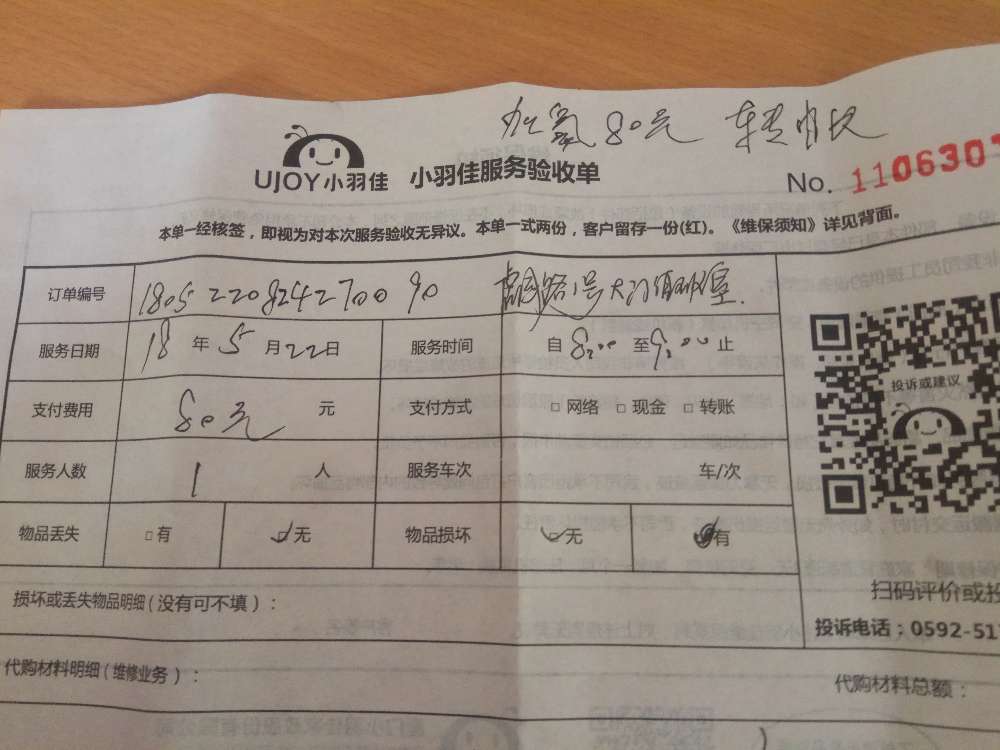 加氨80元 转
UJOY小羽佳 小羽佳服务验收单
No. 110630
本单一经核签，即视为对本次服务验收无异议。本单一式两份，客户留存一份(红)。《维保须知》详见背面。
订单编号 18052208242700 90 路1号
服务日期 18年5月22日 服务时间 自8:00至9:00止
支付费用 80元 元 支付方式 □网络 □现金 □转账
服务人数 1 人 服务车次 车/次
物品丢失 □有 ☑无 物品损坏 ☑无 有
投诉或建议
扫码评价或投
投诉电话：0592-51
损坏或丢失物品明细（没有可不填）：
代购材料明细（维修业务）：
代购材料总额：